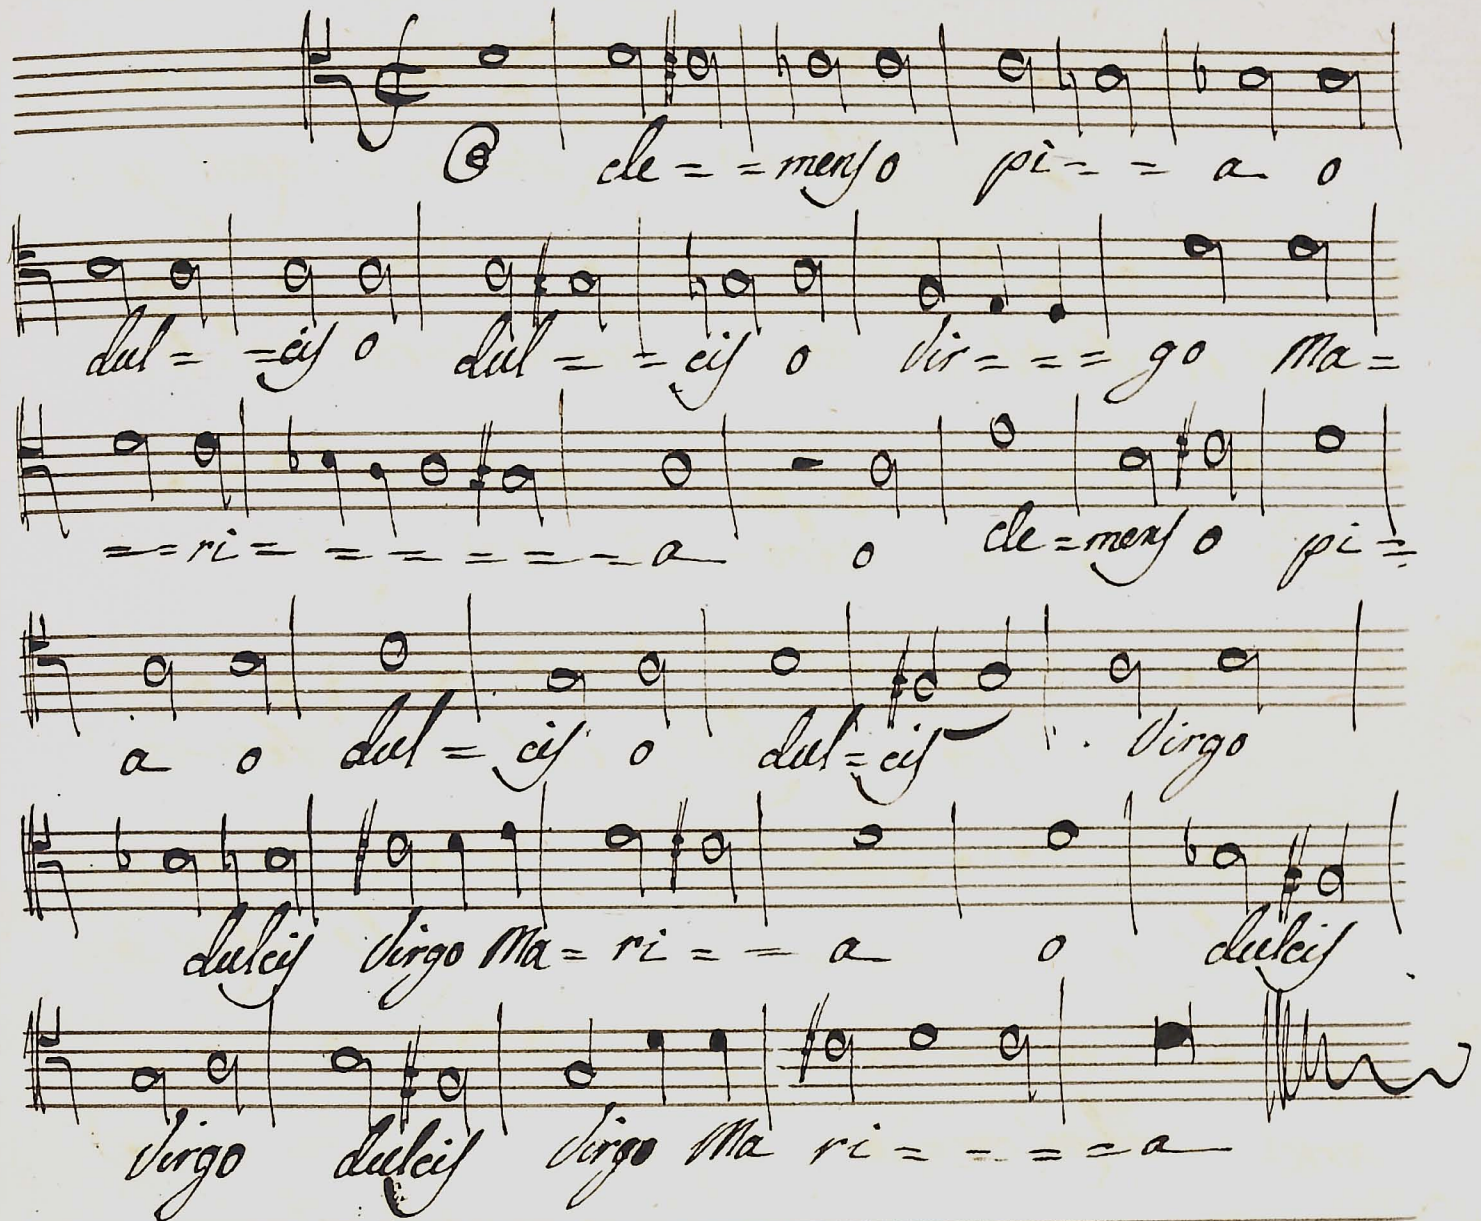 O cle = = mens o pi = = a o
dul = = cis o dul = = cis o vir = = = go Ma =
= = ri = = = = = = = a o cle = mens o pi =
a o dul = cis o dul = cis Virgo
dulcis Virgo Ma = ri = = a o dulcis
Virgo dulcis Virgo Ma ri = = = = a